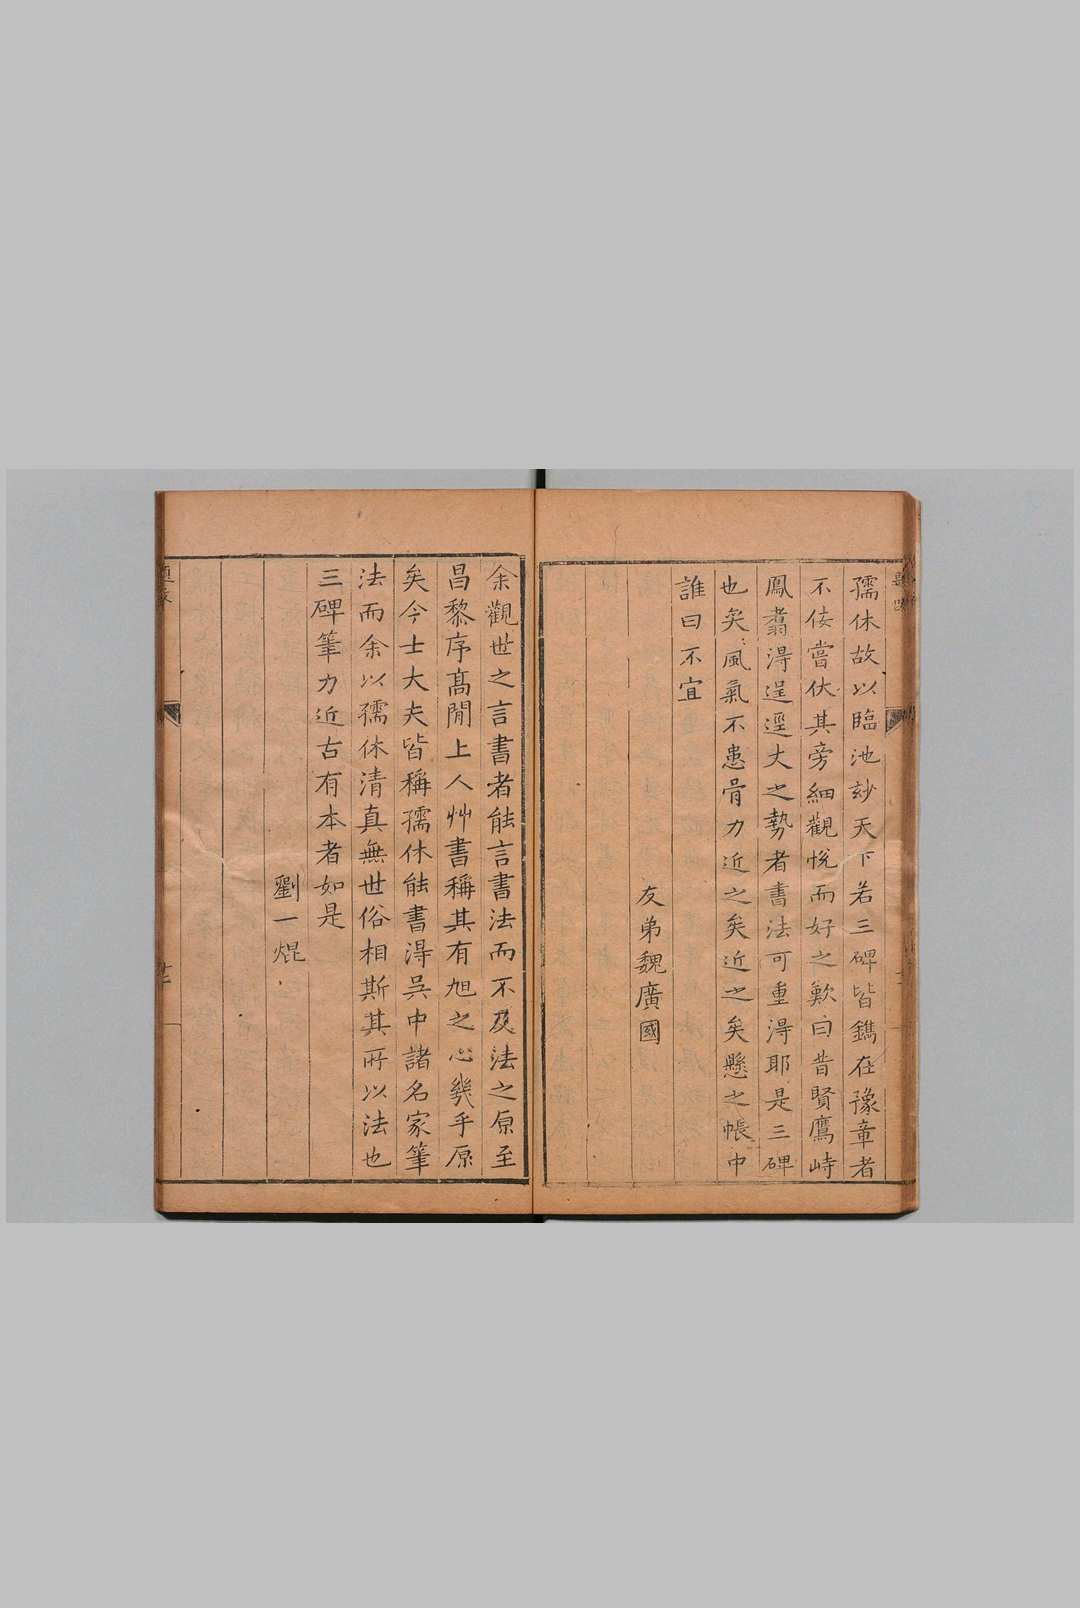 孺休故以臨池玅天下若三碑皆鐫在豫章者
不佞嘗伏其旁細觀悅而好之歎曰昔賢鷹峙
鳳翥得逞逕丈之勢者書法可重得耶是三碑
也矣風氣不患骨力近之矣近之矣懸之帳中
誰曰不宜
友弟魏廣國
余觀世之言書者能言書法而不及法之原至
昌黎序高閒上人艸書稱其有旭之心幾乎原
矣今士大夫皆稱孺休能書得吳中諸名家筆
法而余以孺休清真無世俗相斯其所以法也
三碑筆力近古有本者如是
劉一焜